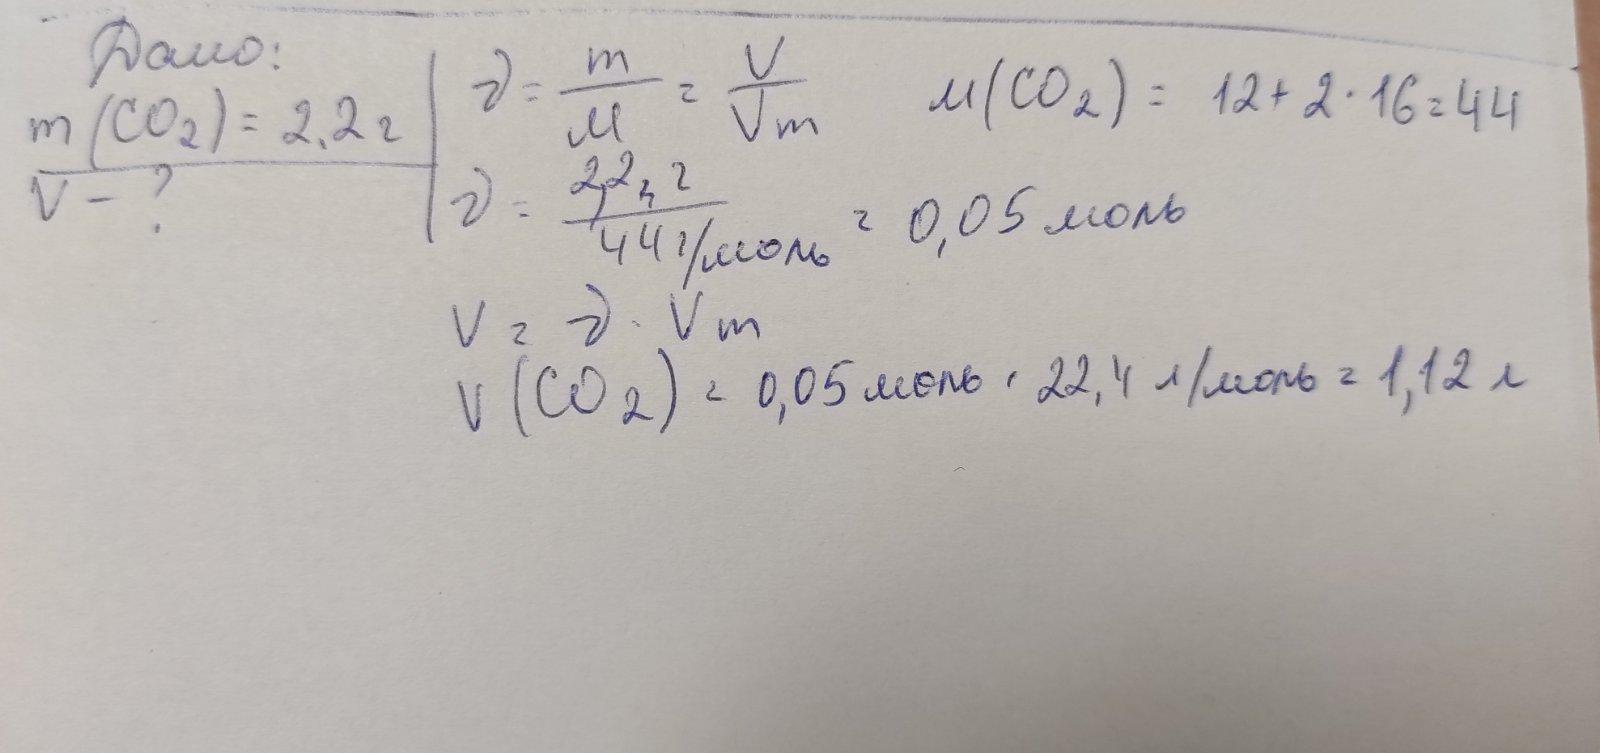 Дано:
m(CO₂) = 2,2 г
V - ?
ν = m/M = V/Vm M(CO₂) = 12 + 2 · 16 = 44
ν = 2,2 г / 44 г/моль = 0,05 моль
V = ν · Vm
V(CO₂) = 0,05 моль · 22,4 л/моль = 1,12 л